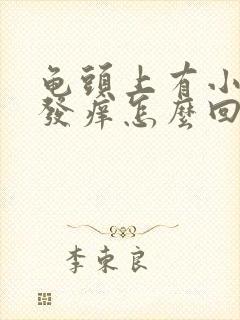 龟頭上有小
發痒怎麼回
李東良